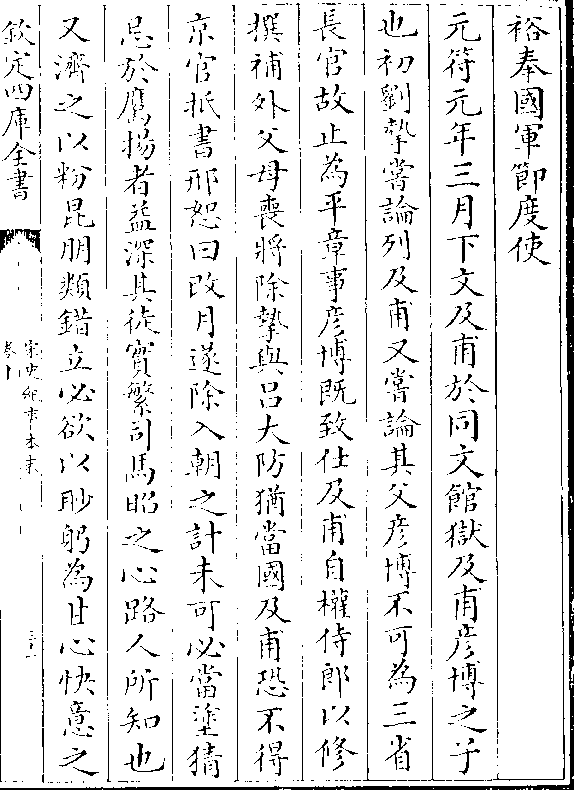 裕奉國軍節度使
元符元年三月下文及甫於同文館獄及甫彦博之子
也初劉摯嘗論列及甫又嘗論其父彦博不可為三省
長官故止為平章事彦博既致仕及甫自權侍郎以修
撰補外父母喪將除摯與呂大防猶當國及甫恐不得
京官抵書邢恕曰改月遂除入朝之計未可必當塗猜
忌於鷹揚者益深其徒實繁司馬昭之心路人所知也
又濟之以粉昆朋類錯立必欲以眇躬為甘心快意之
欽定四庫全書
宋史紀事本末
卷十
三十一